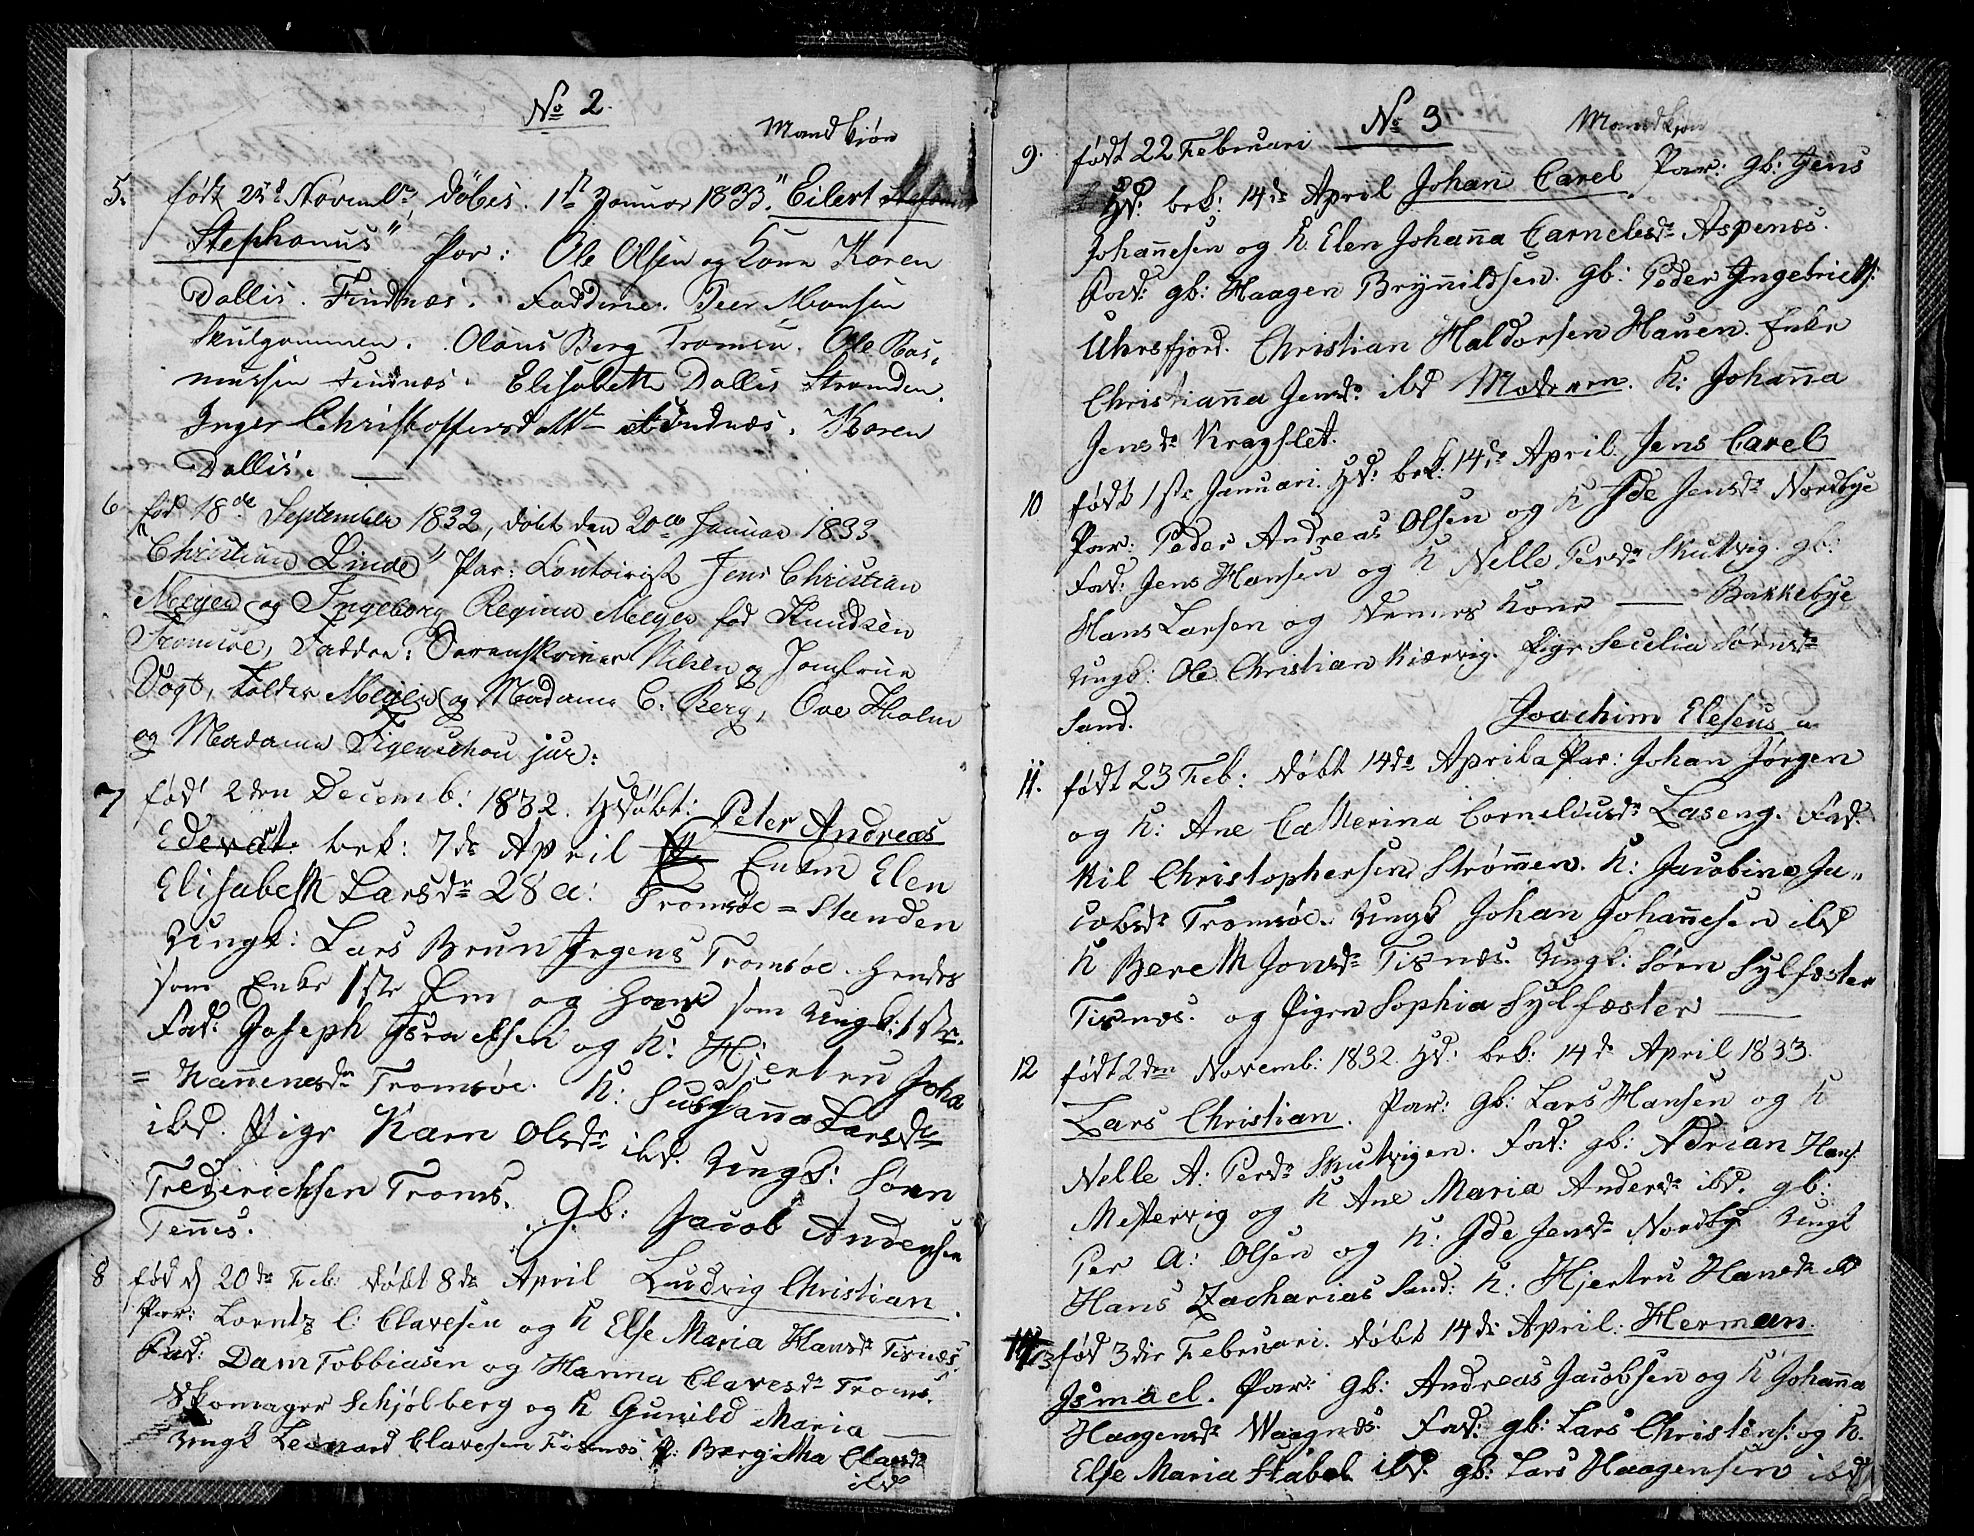 No 2.
Mandkiøn
5. født 25de Novembr, döbes. 1ste Januar 1833. "Eilert
Stephanus" Par: Ole Olsen og Kone Karen
Dallis. Findnæs. Fadderne. Peer Monsen
Skulgammen. Olaus Berg Tromsø. Ole Ras=
mussen Findnæs. Elisabeth Dallis Stranden.
Inger Christoffersdatter Findnæs. Karen
Dallis.
6 fød 18de September 1832, döbt den 20de Januar 1833
"Christian Linde" Par: Contoirist Jens Christian
Meyer og Ingeborg Regina Meyer fød Knudsen
Tromsøe, Faddre: Sorenskriver Nilsen og Jomfrue
Vogt, Tolder Meyer og Madame C. Berg, Ove Holm
og Madame Figenschou jur:
7 fød 2den Decemb: 1832. Hdøbt: Peter Andreas
Edevdt. bek: 7de April Enken Elen
Elisabeth Larsdr 28 a: Tromsøe = Standen
Ungk: Lars Brun Jrgens Tromsøe. Hendes
som Enke 1ste Lm og Hans som Ungk: 1ste.
Fad: Joseph Israelsen og K: Hjertru Joha
= Hannenesdr Tromsøe. K: Susanna Larsdr
ibd. Pige Karn Olsdr ibd. Ungk: Sørn
Frederichsen Troms. Gb: Jacob Andersen
Tennes.
8 fød d 20de Feb: døbt 8de April Ludvig Christian.
Par: Lorntz C: Clavesen og K Else Maria Hansdr Tisnæs.
Fad: Dam Tobbiasen og Hanna Clavesdr Troms.
Skomager Schjølberg og K Gunild Maria —
Ungk Leonard Clavesen Tisnæs P: Bergitha Clavsdr
ibd
No 3
Mandkjøn
9. født 22 Februari
Hd: bek: 14de April Johan Carel Par: gb: Jens
Johañesen og K. Elen Johaña Carnelisdr Aspenæs.
Fad: gb: Haagen Bryñildsen. gb: Peder Ingebriets:
Uhrsfjord. Christian Haldorsen Hauen. Enke
Christiaña Jensdr ibd Moderen. K: Johaña
Jensdr Kragslet.
10 født 1ste Januari. Hd: bek: 14de April. Jens Carel
Par: Peder Andreas Olsen og K Ide Jensdr Nordbye
Fad: Jens Hansen og K Nelle Persdr Skutvig. gb:
Hans Larsen og Dennes Kone — Bakkebye
Ungk: Ole Christian Kiærvig. Pige Secelia Sørnsdr
Sand.
Joachim Eleseus
11. født 23 Feb: døbt 14de Aprila Par: Johan Jørgen
og K: Ane Catherina Corneliusdr Laseng. Fad:
Nil Christophersen Strøm̃en. K: Jacobine Ja=
cobsdr Tromsøe. Ungk Johan Johañesen ibd
K Bereth Jonsdr Tisnæs. Ungk: Sørn Sylfæster
Tisnæs. og Pigen Sophia Sylfæster —
12 født 2den Novemb: 1832. Hd: bek: 14de April 1833.
Lars Christian. Par: gb: Lars Hansen og K
Nelle A: Persdr Skutvigen. Fad: gb: Adrian Hans:
Mestervig og K Ane Maria Andersdr ibd. gb:
Per A: Olsen og K: Ide Jensdr Nordby Ungk
Hans Zacharias Sand: K: Hjertru Hansdr ibd
13 fød 3die Februari. døbt 14de April: Herman
Ismael. Par: gb: Andreas Jacobsen og K Johaña
Haagensdr Waagnæs. Fad: gb: Lars Christens: og K.
Else Maria Stabel ibd. gb: Lars Haagensen ibd